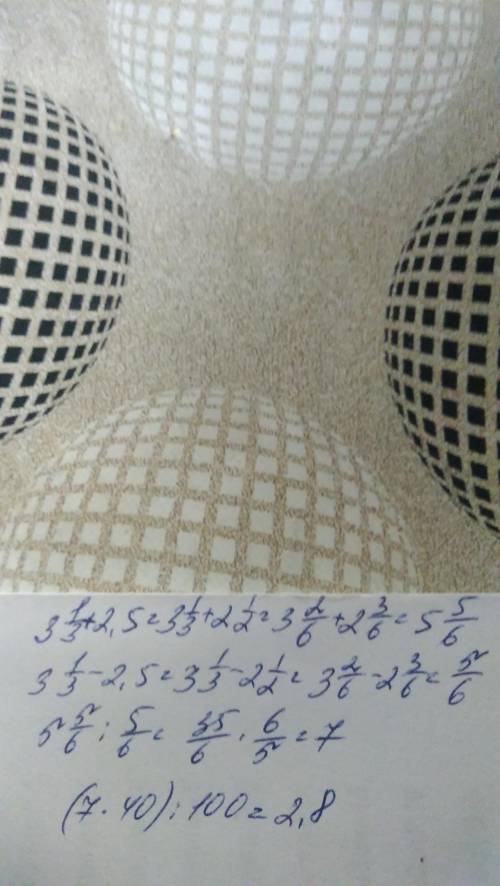 3 1/3 + 2,5 = 3 1/3 + 2 1/2 = 3 2/6 + 2 3/6 = 5 5/6
3 1/3 - 2,5 = 3 1/3 - 2 1/2 = 3 2/6 - 2 3/6 = 5/6
5 5/6 : 5/6 = 35/6 · 6/5 = 7
(7 · 40) : 100 = 2,8